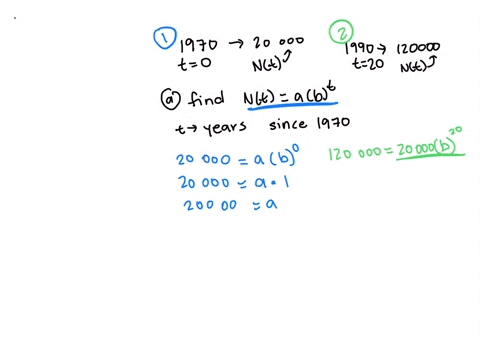 ① 1970 → 20 000
t=0 N(t)
② 1990 → 120000
t=20 N(t)
ⓐ find N(t) = a(b)^t
t → years since 1970
20 000 = a(b)^0
20 000 = a • 1
200 00 = a
120 000 = 20 000(b)^20